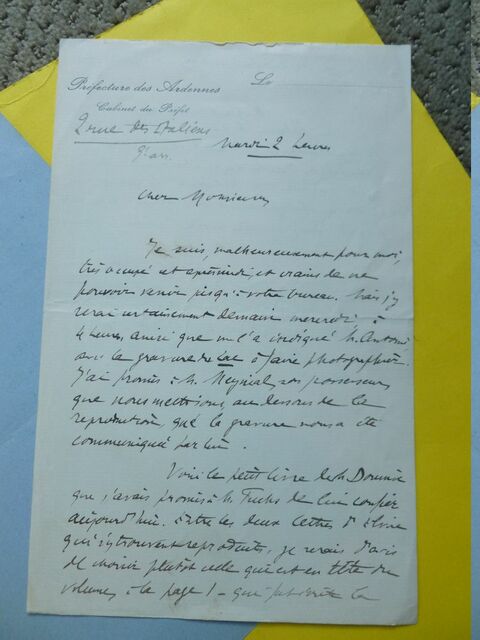 Préfecture des Ardennes
Le
Cabinet du Préfet
2 rue des Italiens
9e arr.
Mardi 2 heures
Cher Monsieur,
Je suis, malheureusement pour moi,
très occupé cet après-midi et crains de ne
pouvoir venir jusqu'à votre bureau. Mais j'y
serai certainement demain mercredi à
4 heures, ainsi que me l'a indiqué M. Antoni
avec la gravure du Lac à faire photographier.
J'ai promis à M. Meynial, son possesseur,
que nous mettrions, au dessous de la
reproduction, que la gravure nous a été
communiquée par lui.
Voici le petit livre de M. Doumic
que j'avais promis à M. Fuchs de lui confier
aujourd'hui. Entre les deux lettres d'Elvire
qui s'y trouvent reproduites, je serais d'avis
de choisir plutôt celle qui est en tête du
volume, à la page 1 - que la